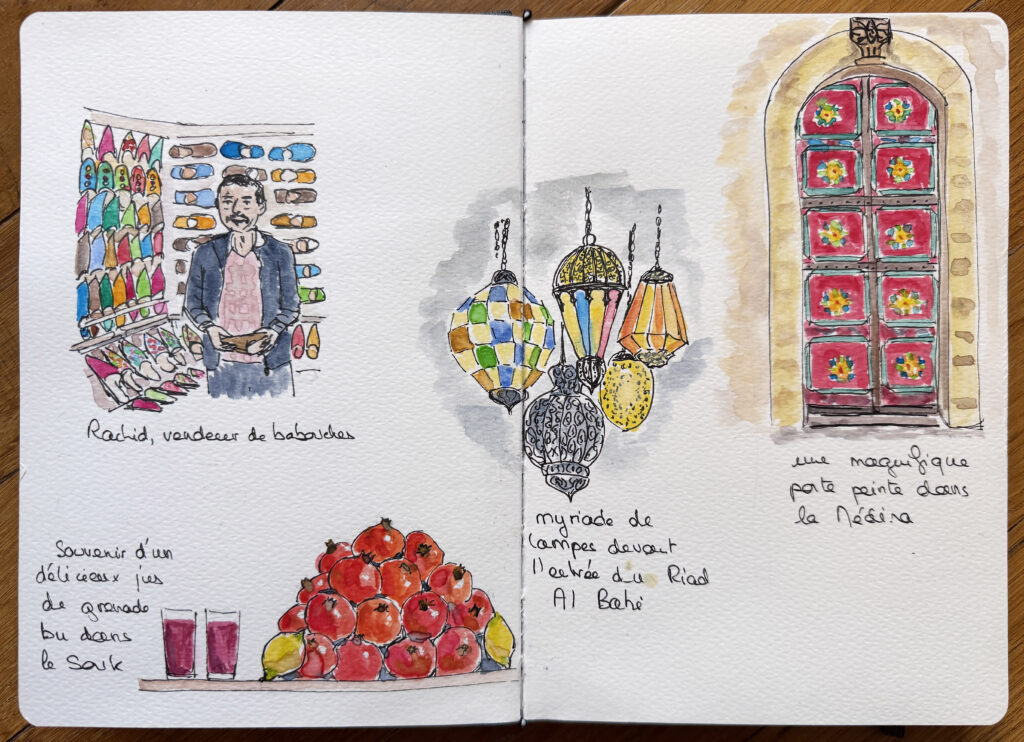 Rachid, vendeur de babouches
Souvenir d'un
délicieux jus
de grenade
bu dans
le Souk
myriade de
lampes devant
l'entrée du Riad
Al Bahé
une magnifique
porte peinte dans
la Médina